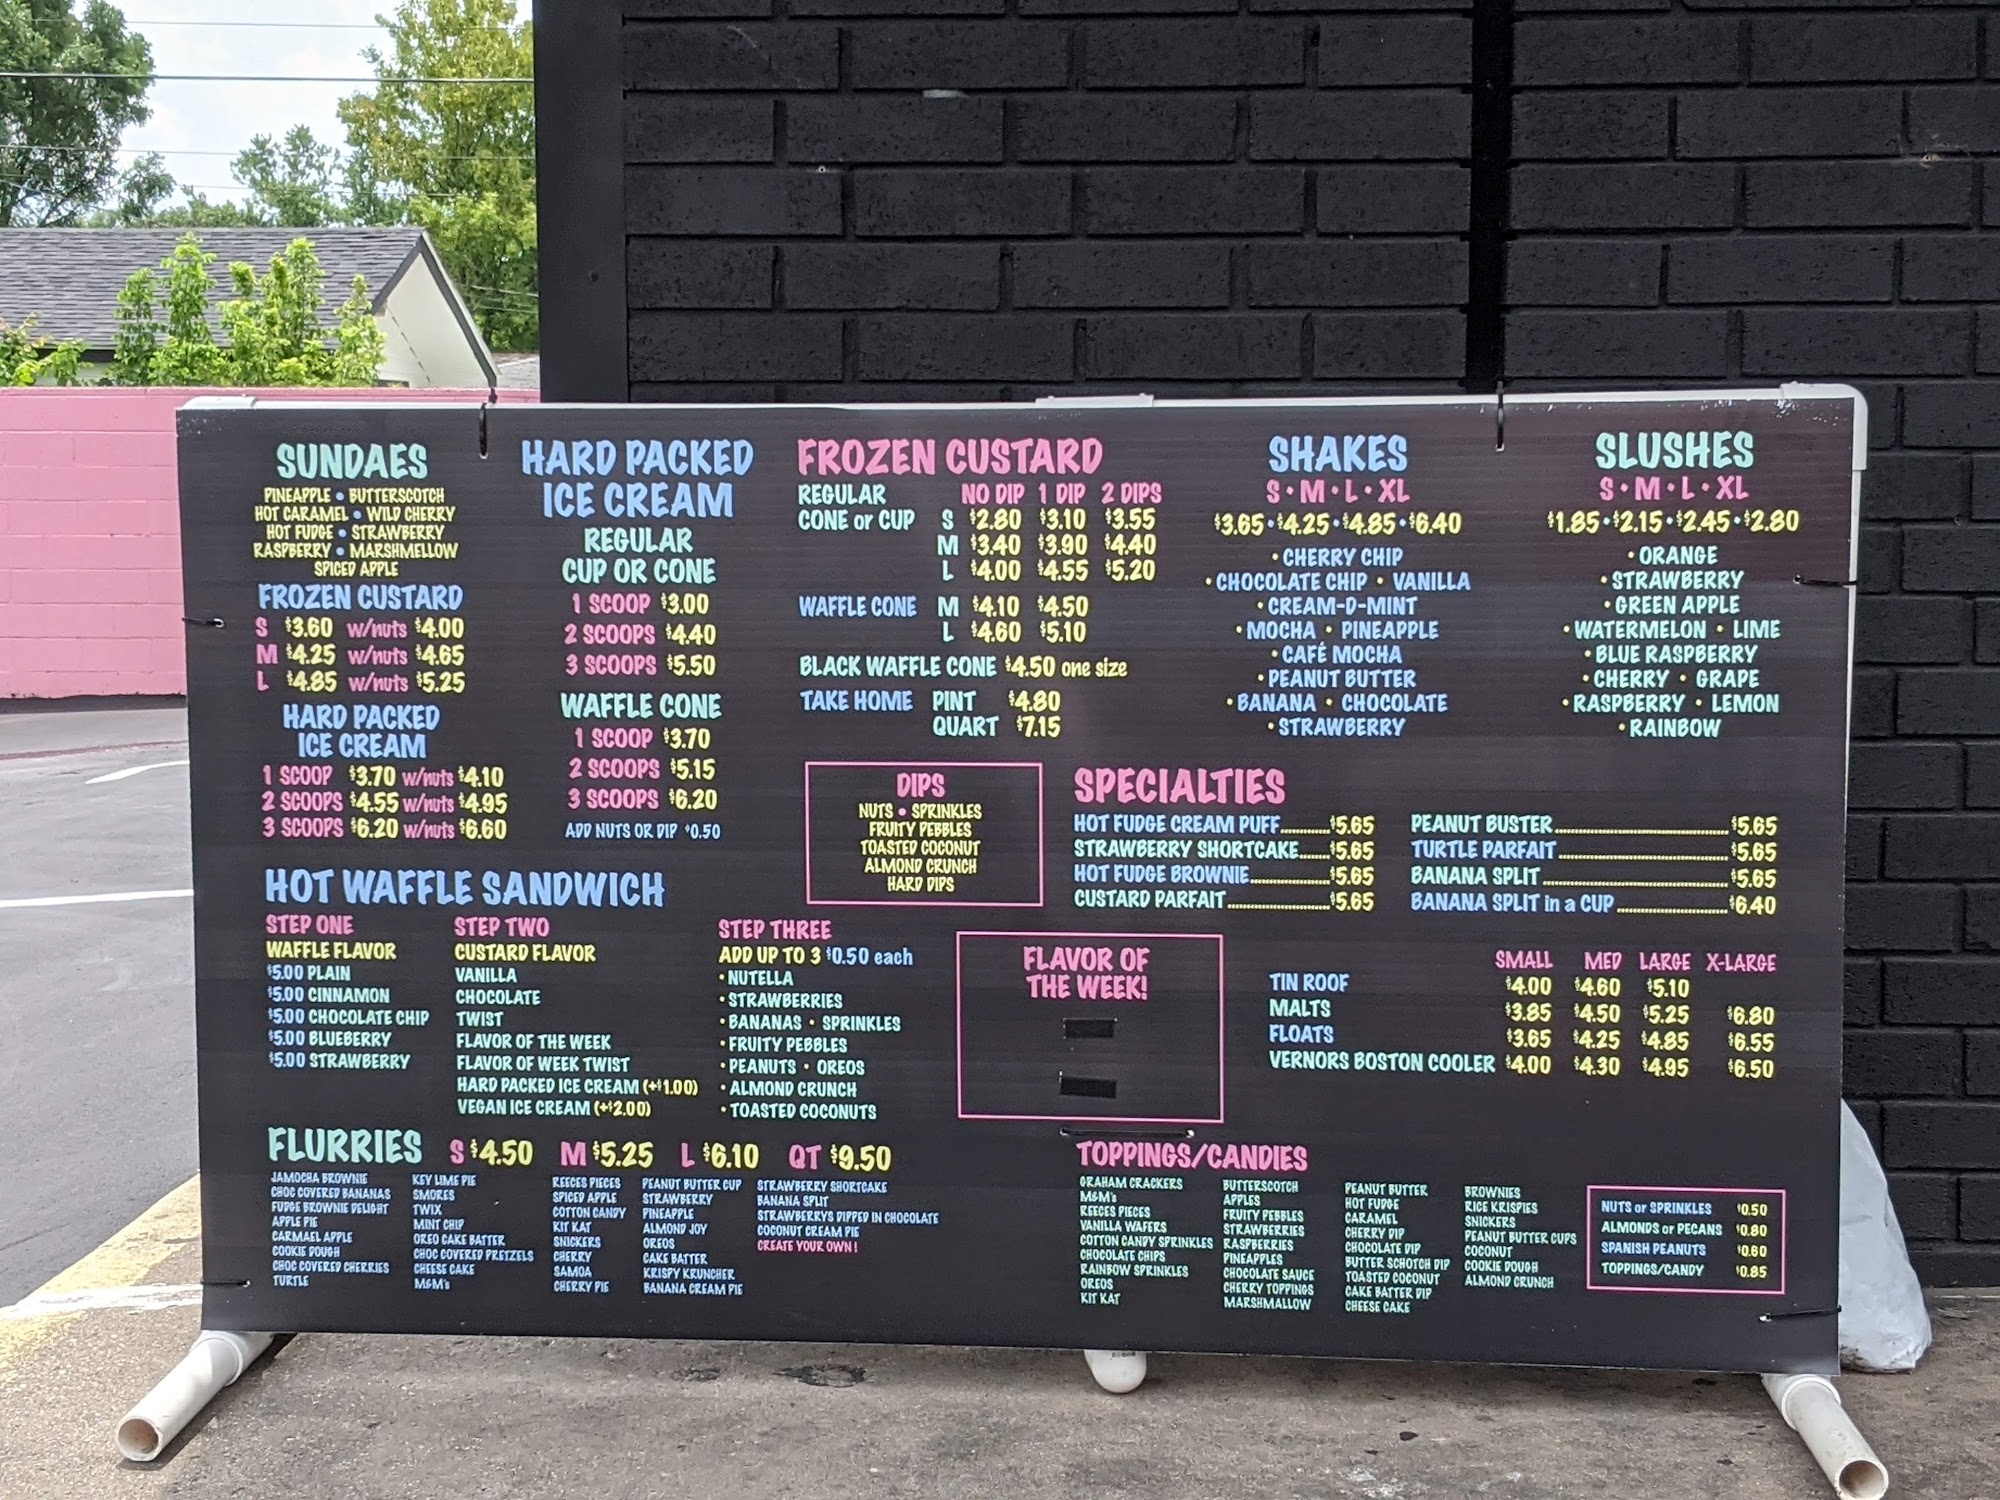 SUNDAES
PINEAPPLE • BUTTERSCOTCH
HOT CARAMEL • WILD CHERRY
HOT FUDGE • STRAWBERRY
RASPBERRY • MARSHMELLOW
SPICED APPLE
FROZEN CUSTARD
S $3.60 w/nuts $4.00
M $4.25 w/nuts $4.65
L $4.85 w/nuts $5.25
HARD PACKED
ICE CREAM
1 SCOOP $3.70 w/nuts $4.10
2 SCOOPS $4.55 w/nuts $4.95
3 SCOOPS $6.20 w/nuts $6.60
HARD PACKED
ICE CREAM
REGULAR
CUP OR CONE
1 SCOOP $3.00
2 SCOOPS $4.40
3 SCOOPS $5.50
WAFFLE CONE
1 SCOOP $3.70
2 SCOOPS $5.15
3 SCOOPS $6.20
ADD NUTS OR DIP $0.50
FROZEN CUSTARD
REGULAR NO DIP 1 DIP 2 DIPS
CONE or CUP S $2.80 $3.10 $3.55
M $3.40 $3.90 $4.40
L $4.00 $4.55 $5.20
WAFFLE CONE M $4.10 $4.50
L $4.60 $5.10
BLACK WAFFLE CONE $4.50 one size
TAKE HOME PINT $4.80
QUART $7.15
SHAKES
S • M • L • XL
$3.65 • $4.25 • $4.85 • $6.40
• CHERRY CHIP
• CHOCOLATE CHIP • VANILLA
• CREAM-D-MINT
• MOCHA • PINEAPPLE
• CAFÉ MOCHA
• PEANUT BUTTER
• BANANA • CHOCOLATE
• STRAWBERRY
SLUSHES
S • M • L • XL
$1.85 • $2.15 • $2.45 • $2.80
• ORANGE
• STRAWBERRY
• GREEN APPLE
• WATERMELON • LIME
• BLUE RASPBERRY
• CHERRY • GRAPE
• RASPBERRY • LEMON
• RAINBOW
DIPS
NUTS • SPRINKLES
FRUITY PEBBLES
TOASTED COCONUT
ALMOND CRUNCH
HARD DIPS
SPECIALTIES
HOT FUDGE CREAM PUFF $5.65
STRAWBERRY SHORTCAKE $5.65
HOT FUDGE BROWNIE $5.65
CUSTARD PARFAIT $5.65
PEANUT BUSTER $5.65
TURTLE PARFAIT $5.65
BANANA SPLIT $5.65
BANANA SPLIT in a CUP $6.40
HOT WAFFLE SANDWICH
STEP ONE
WAFFLE FLAVOR
$5.00 PLAIN
$5.00 CINNAMON
$5.00 CHOCOLATE CHIP
$5.00 BLUEBERRY
$5.00 STRAWBERRY
STEP TWO
CUSTARD FLAVOR
VANILLA
CHOCOLATE
TWIST
FLAVOR OF THE WEEK
FLAVOR OF WEEK TWIST
HARD PACKED ICE CREAM (+$1.00)
VEGAN ICE CREAM (+$2.00)
STEP THREE
ADD UP TO 3 $0.50 each
• NUTELLA
• STRAWBERRIES
• BANANAS • SPRINKLES
• FRUITY PEBBLES
• PEANUTS • OREOS
• ALMOND CRUNCH
• TOASTED COCONUTS
FLAVOR OF
THE WEEK!
SMALL MED LARGE X-LARGE
TIN ROOF $4.00 $4.60 $5.10
MALTS $3.85 $4.50 $5.25 $6.80
FLOATS $3.65 $4.25 $4.85 $6.55
VERNORS BOSTON COOLER $4.00 $4.30 $4.95 $6.50
FLURRIES S $4.50 M $5.25 L $6.10 QT $9.50
JAMOCHA BROWNIE
CHOC COVERED BANANAS
FUDGE BROWNIE DELIGHT
APPLE PIE
CARMAEL APPLE
COOKIE DOUGH
CHOC COVERED CHERRIES
TURTLE
KEY LIME PIE
SMORES
TWIX
MINT CHIP
OREO CAKE BATTER
CHOC COVERED PRETZELS
CHEESE CAKE
M&M's
REECES PIECES
SPICED APPLE
COTTON CANDY
KIT KAT
SNICKERS
CHERRY
SAMOA
CHERRY PIE
PEANUT BUTTER CUP
STRAWBERRY
PINEAPPLE
ALMOND JOY
OREOS
CAKE BATTER
KRISPY KRUNCHER
BANANA CREAM PIE
STRAWBERRY SHORTCAKE
BANANA SPLIT
STRAWBERRYS DIPPED IN CHOCOLATE
COCONUT CREAM PIE
CREATE YOUR OWN!
TOPPINGS/CANDIES
GRAHAM CRACKERS
M&M's
REECES PIECES
VANILLA WAFERS
COTTON CANDY SPRINKLES
CHOCOLATE CHIPS
RAINBOW SPRINKLES
OREOS
KIT KAT
BUTTERSCOTCH
APPLES
FRUITY PEBBLES
STRAWBERRIES
RASPBERRIES
PINEAPPLES
CHOCOLATE SAUCE
CHERRY TOPPINGS
MARSHMALLOW
PEANUT BUTTER
HOT FUDGE
CARAMEL
CHERRY DIP
CHOCOLATE DIP
BUTTER SCHOTCH DIP
TOASTED COCONUT
CAKE BATTER DIP
CHEESE CAKE
BROWNIES
RICE KRISPIES
SNICKERS
PEANUT BUTTER CUPS
COCONUT
COOKIE DOUGH
ALMOND CRUNCH
NUTS or SPRINKLES $0.50
ALMONDS or PECANS $0.80
SPANISH PEANUTS $0.60
TOPPINGS/CANDY $0.85